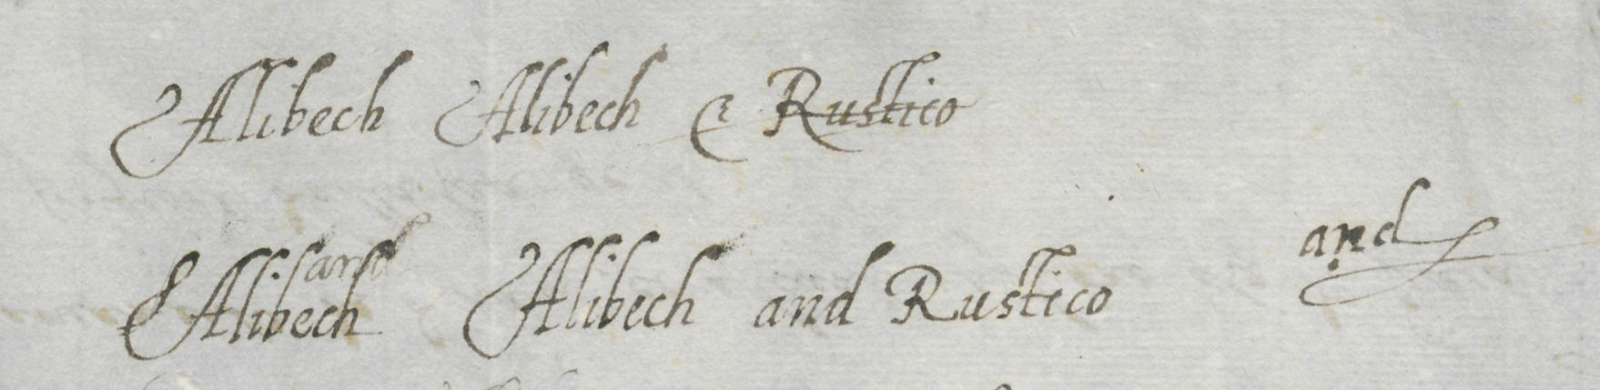 Alibech Alibech & Rustico
and
Alibech Alibech and Rustico and